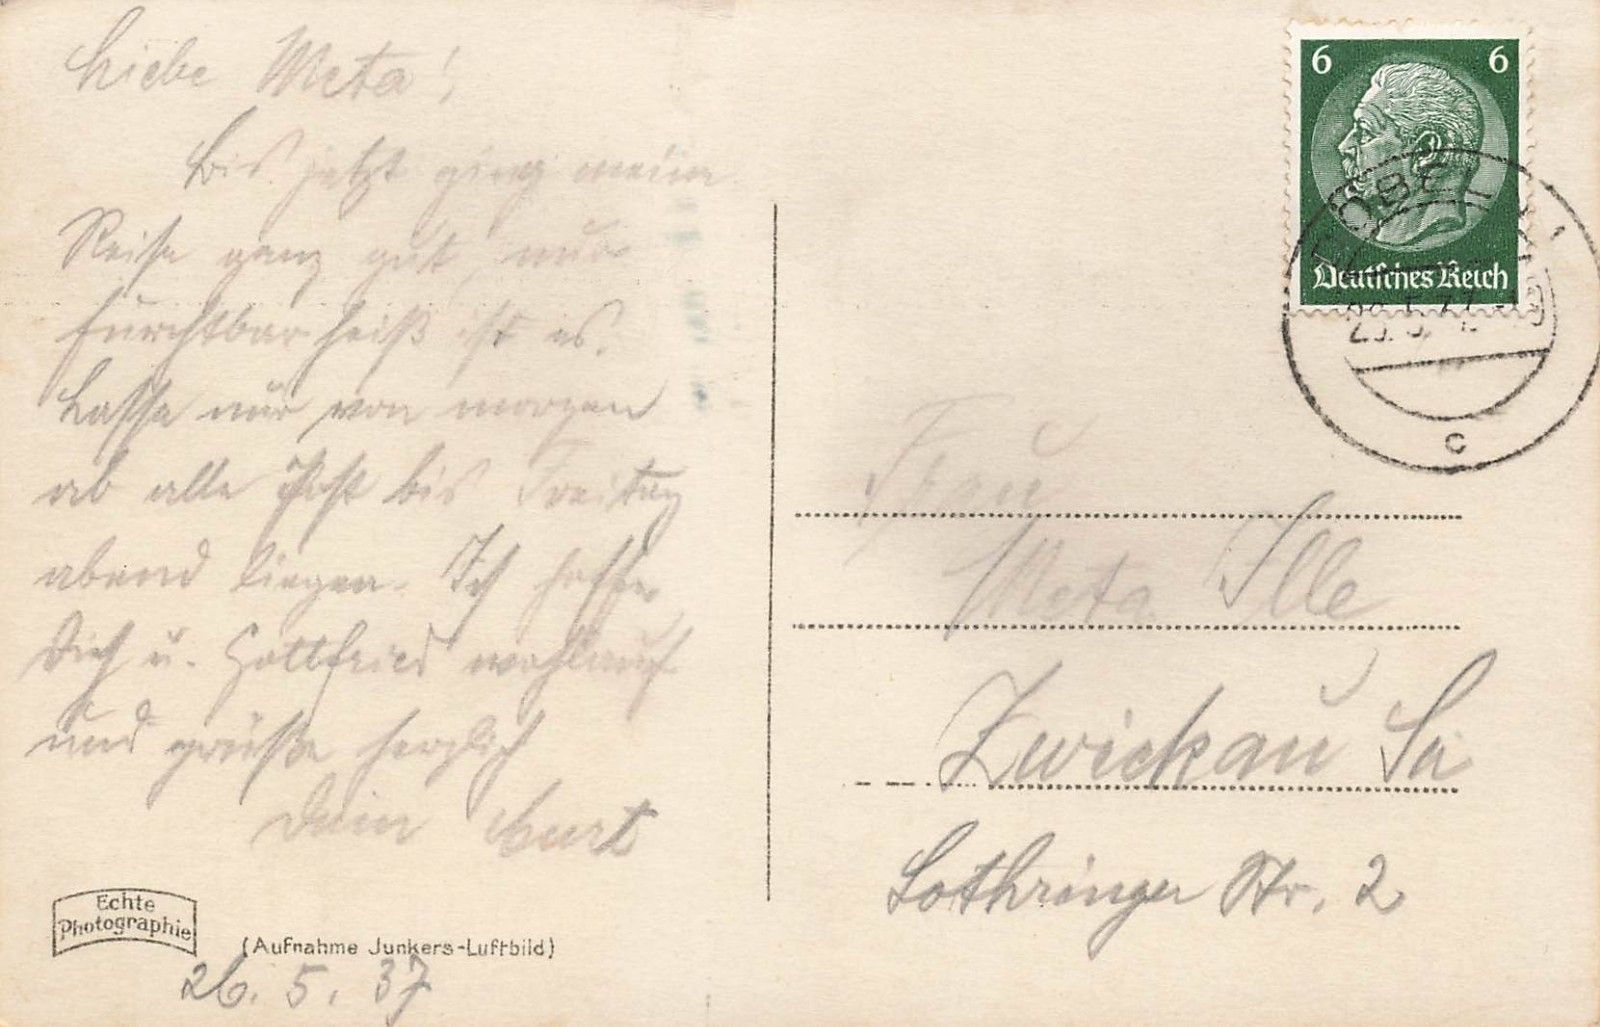 Liebe Meta!
Bis jetzt ging meine
Reise ganz gut, nur
furchtbar heiß ist es.
Lasse nur von morgen
ab alle Post bis Freitag
abend liegen. Ich hoffe
Dich u. Gottfried wohlauf
und grüße herzlich
Dein Kurt
Echte
Photographie
(Aufnahme Junkers-Luftbild)
26. 5. 37
6 6
Deutsches Reich
c
Frau
Meta Ille
Zwickau Sa
Lothringer Str. 2